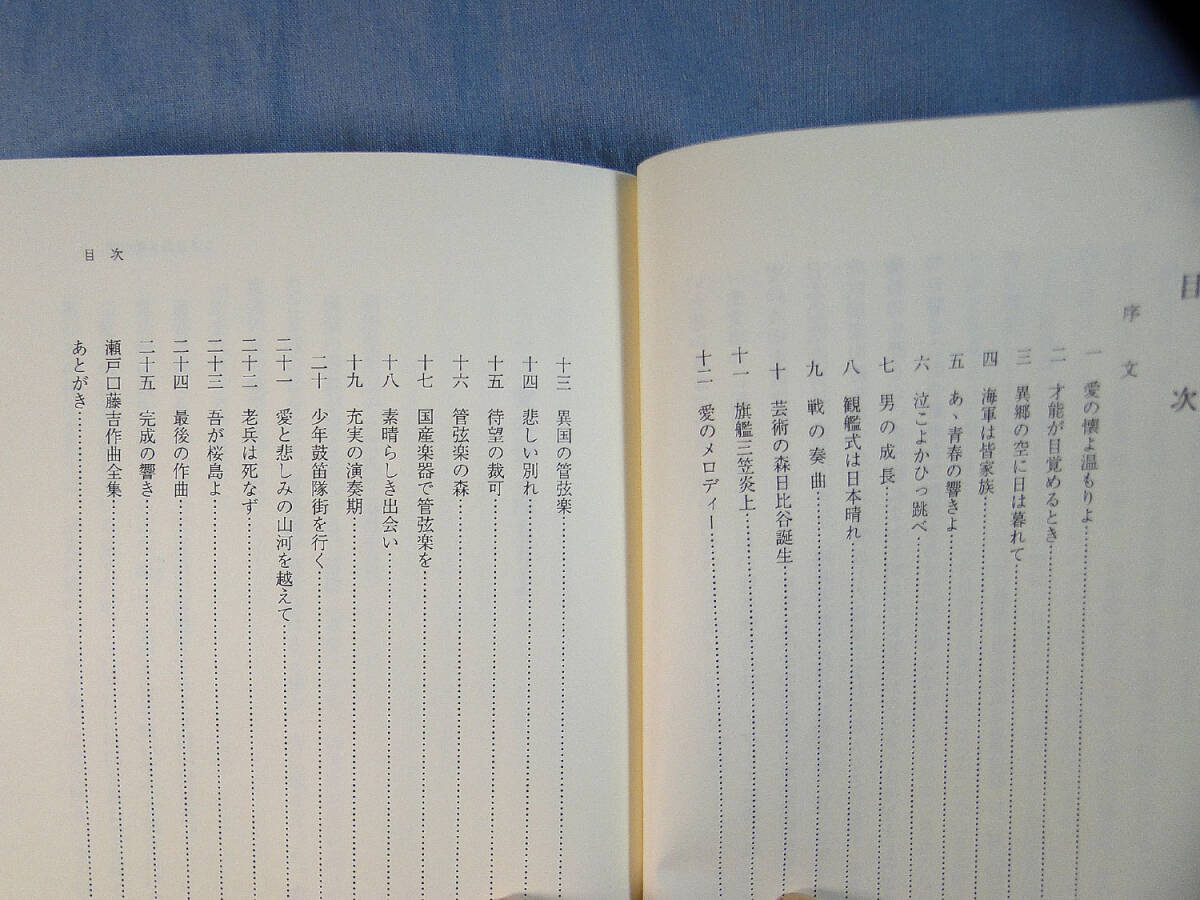 目次
序文
一 愛の懐よ温もりよ
二 才能が目覚めるとき
三 異郷の空に日は暮れて
四 海軍は皆家族
五 あゝ青春の響きよ
六 泣こよかひっ跳べ
七 男の成長
八 観艦式は日本晴れ
九 戦の奏曲
十 芸術の森日比谷誕生
十一 旗艦三笠炎上
十二 愛のメロディー
十三 異国の管弦楽
十四 悲しい別れ
十五 待望の裁可
十六 管弦楽の森
十七 国産楽器で管弦楽を
十八 素晴らしき出会い
十九 充実の演奏期
二十 少年鼓笛隊街を行く
二十一 愛と悲しみの山河を越えて
二十二 老兵は死なず
二十三 吾が桜島よ
二十四 最後の作曲
二十五 完成の響き
瀬戸口藤吉作曲全集
あとがき
目次